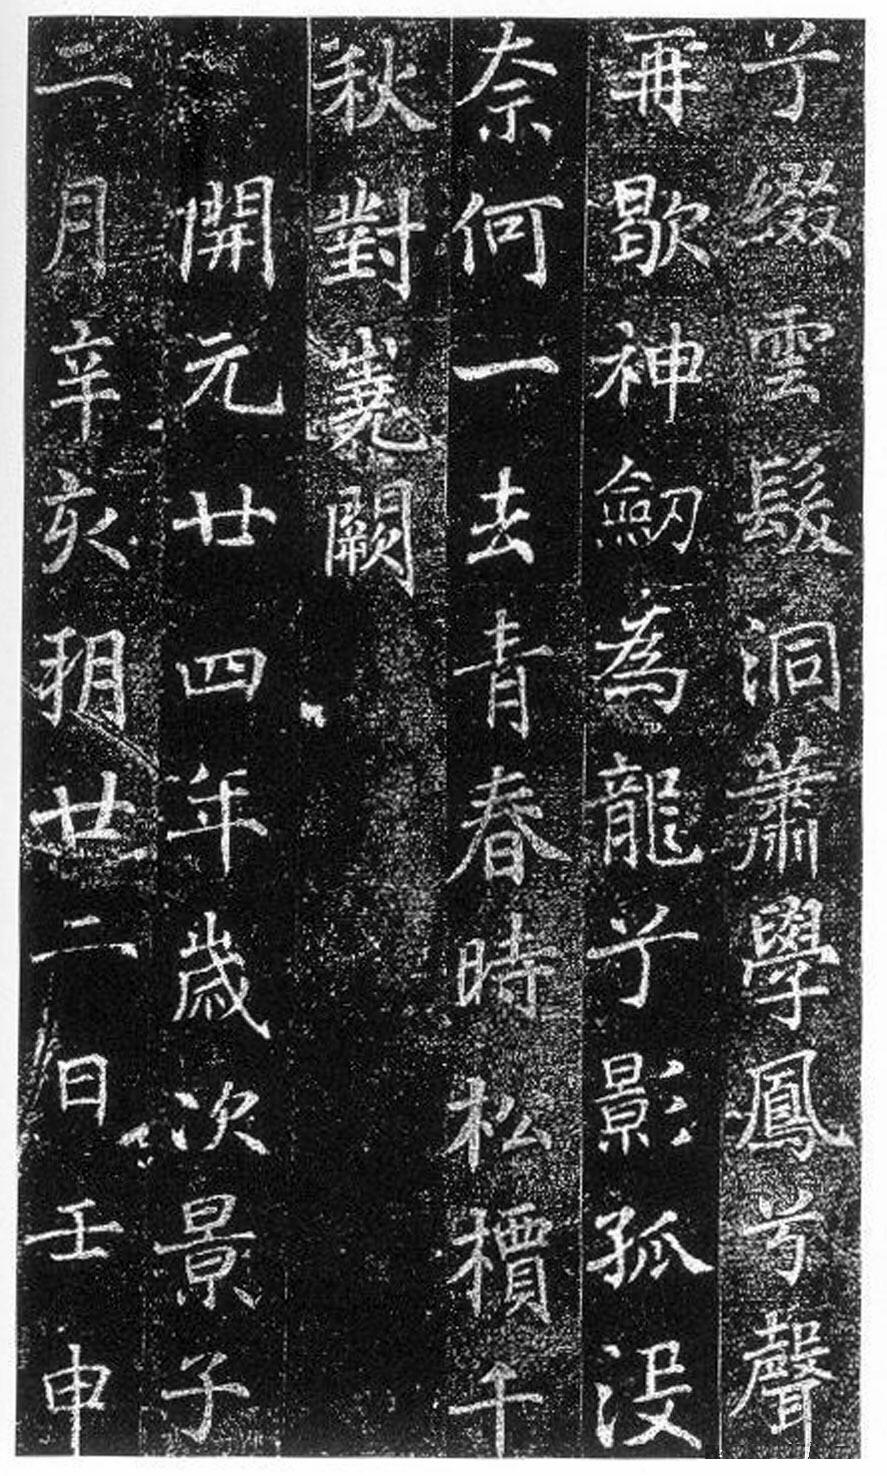 兮綴雲髮洞蕭學鳳兮聲
再歇神劒為龍兮影孤没
奈何一去青春時松檟千
秋對嶤闕
開元廿四年歲次景子
二月辛亥朔廿二日壬申